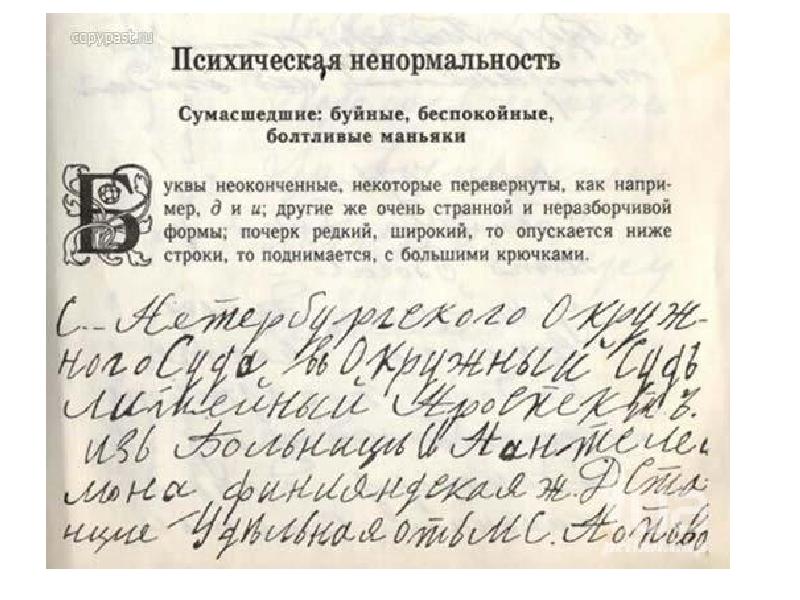 copypast.ru
Психическая ненормальность
Сумасшедшие: буйные, беспокойные,
болтливые маньяки
Буквы неоконченные, некоторые перевернуты, как напри-
мер, д и и; другие же очень странной и неразборчивой
формы; почерк редкий, широкий, то опускается ниже
строки, то поднимается, с большими крючками.
С.-Петербургского Окруж-
ного Суда въ Окружный Судъ
Литейный Проспектъ.
изъ Больницы Пантелей
мона финляндская ж. Д Ста
нцие Удѣльная отъ М С. Попово